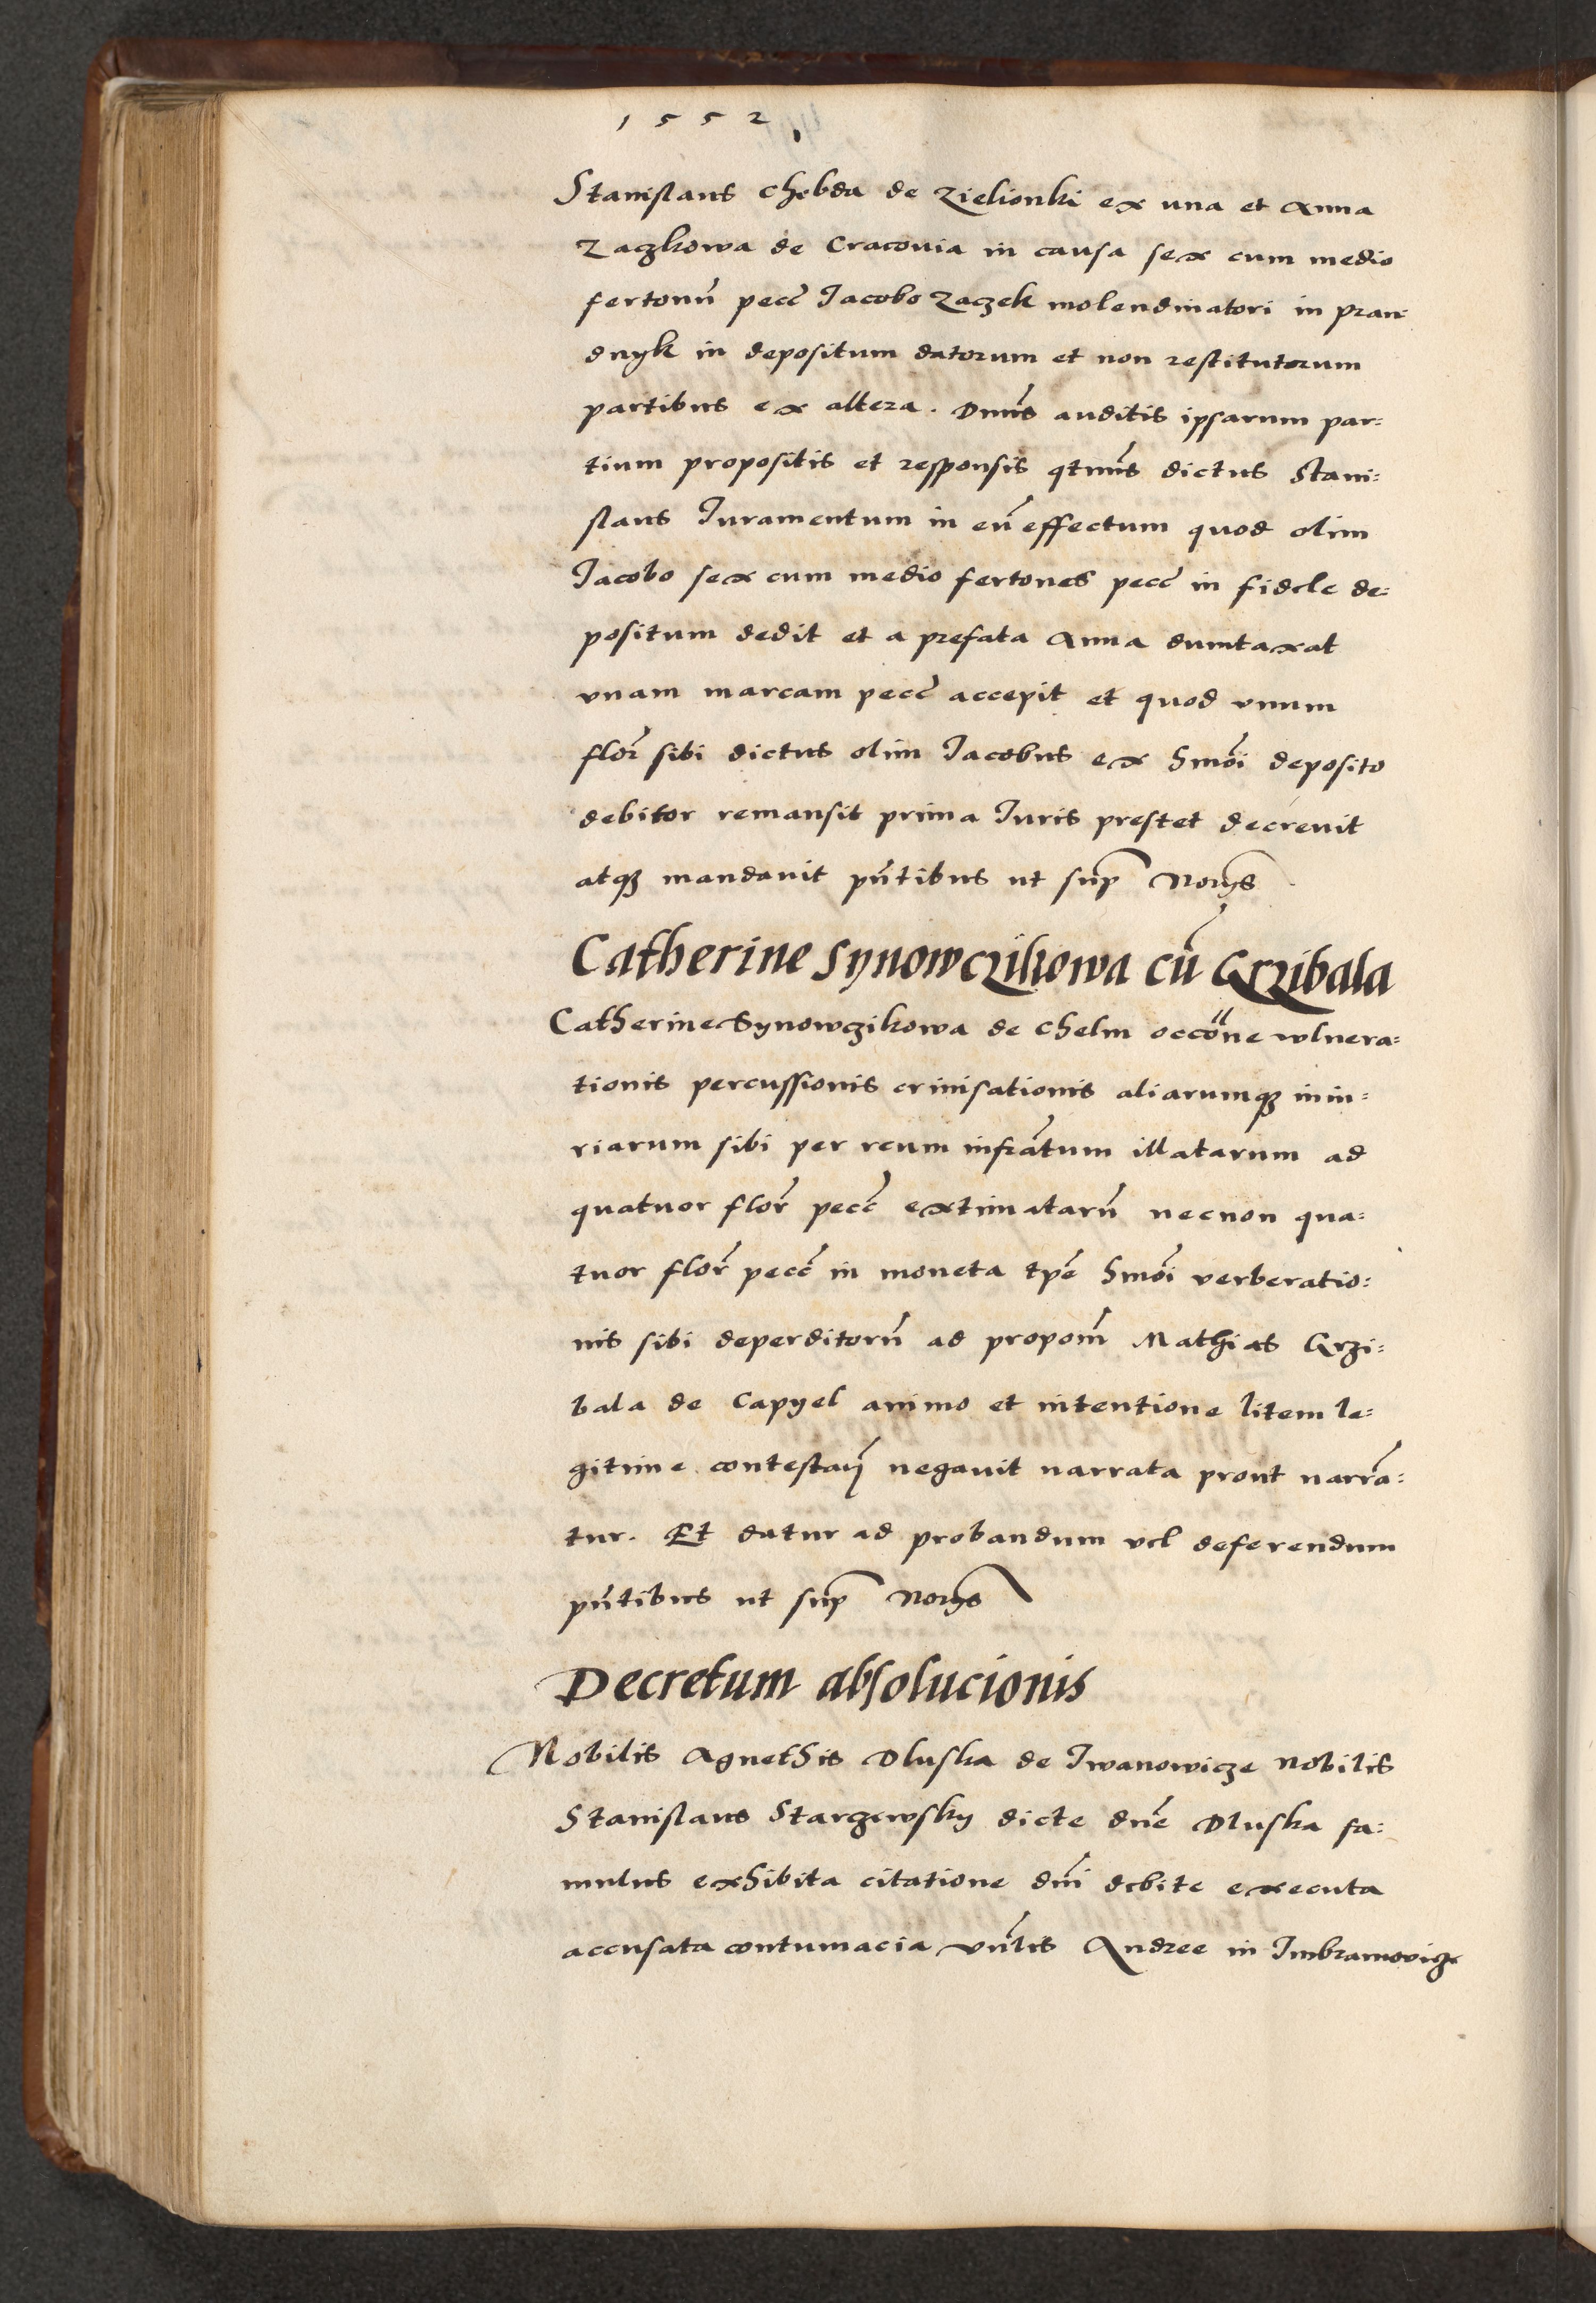 1552
Stanislaus Chebda de Zielionki ex una et Anna
Zaczkowa de Cracovia in causa sex cum medio
fertonũ pecc̃ Jacobo Zaczek molendinatori in pran-
dnyk in depositum datorum et non restitutorum
partibus ex altera. Dnũs auditis ipsarum par=
tium propositis et responsis qtnũs dictus Stani=
slaus Juramentum in eũ effectum quod olim
Jacobo sex cum medio fertones pecc̃ in fidele de=
positum dedit et a prefata Anna dumtaxat
vnam marcam pecc̃ accepit et quod vnum
flor̃ sibi dictus olim Jacobus ex hmõi deposito
debitor remansit prima Juris prestet decrevit
atq; mandavit pñtibus ut sup̃ Norys
Catherine Synowczikowa cũ Grzibala
Catherine Synowczikowa de Chelm occõne wlnera=
tionis percussionis crinisationis aliarumq; iniu=
riarum sibi per reum infrãtum illatarum ad
quatuor flor̃ pecc̃ extimatarũ necnon qua=
tuor flor̃ pecc̃ in moneta tp̃e hmõi verberatio=
nis sibi deperditorũ ad propom̃ Mathias Grzi=
bala de Capyel animo et intentione litem le=
gitime contestañ negavit narrata prout narrã=
tur. Et datur ad probandum vel deferendum
pñtibus ut sup̃ Norys
Decretum absolucionis
Nobilis Agnethis Dluska de Iwanowicze nobilis
Stanislaus Starzewsky dicte dnẽ Dluska fa=
mulus exhibita citatione dñi debite executa
accusata contumacia vñlis Andree in Imbramovicz